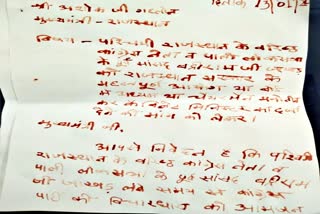 दिनांक 13/01/2
श्री अशोक जी गहलोत
मुख्यमंत्री - राजस्थान
विषय - पश्चिमी राजस्थान के वरिष्ठ
कांग्रेस नेता व पाली लोकसभा
के पूर्व सांसद जी
को राजस्थान सरकार के
आयोग या बोर्ड
कर के केबिनेट मिनिस्टर का दर्जा
देने की मांग को लेकर।
मुख्यमंत्री जी,
आपसे निवेदन है कि पश्चिमी
राजस्थान के वरिष्ठ कांग्रेस नेता व
पाली लोकसभा के पूर्व सांसद
जी जाखड़ लंबे समय से कांग्रेस
पार्टी की विचारधारा को